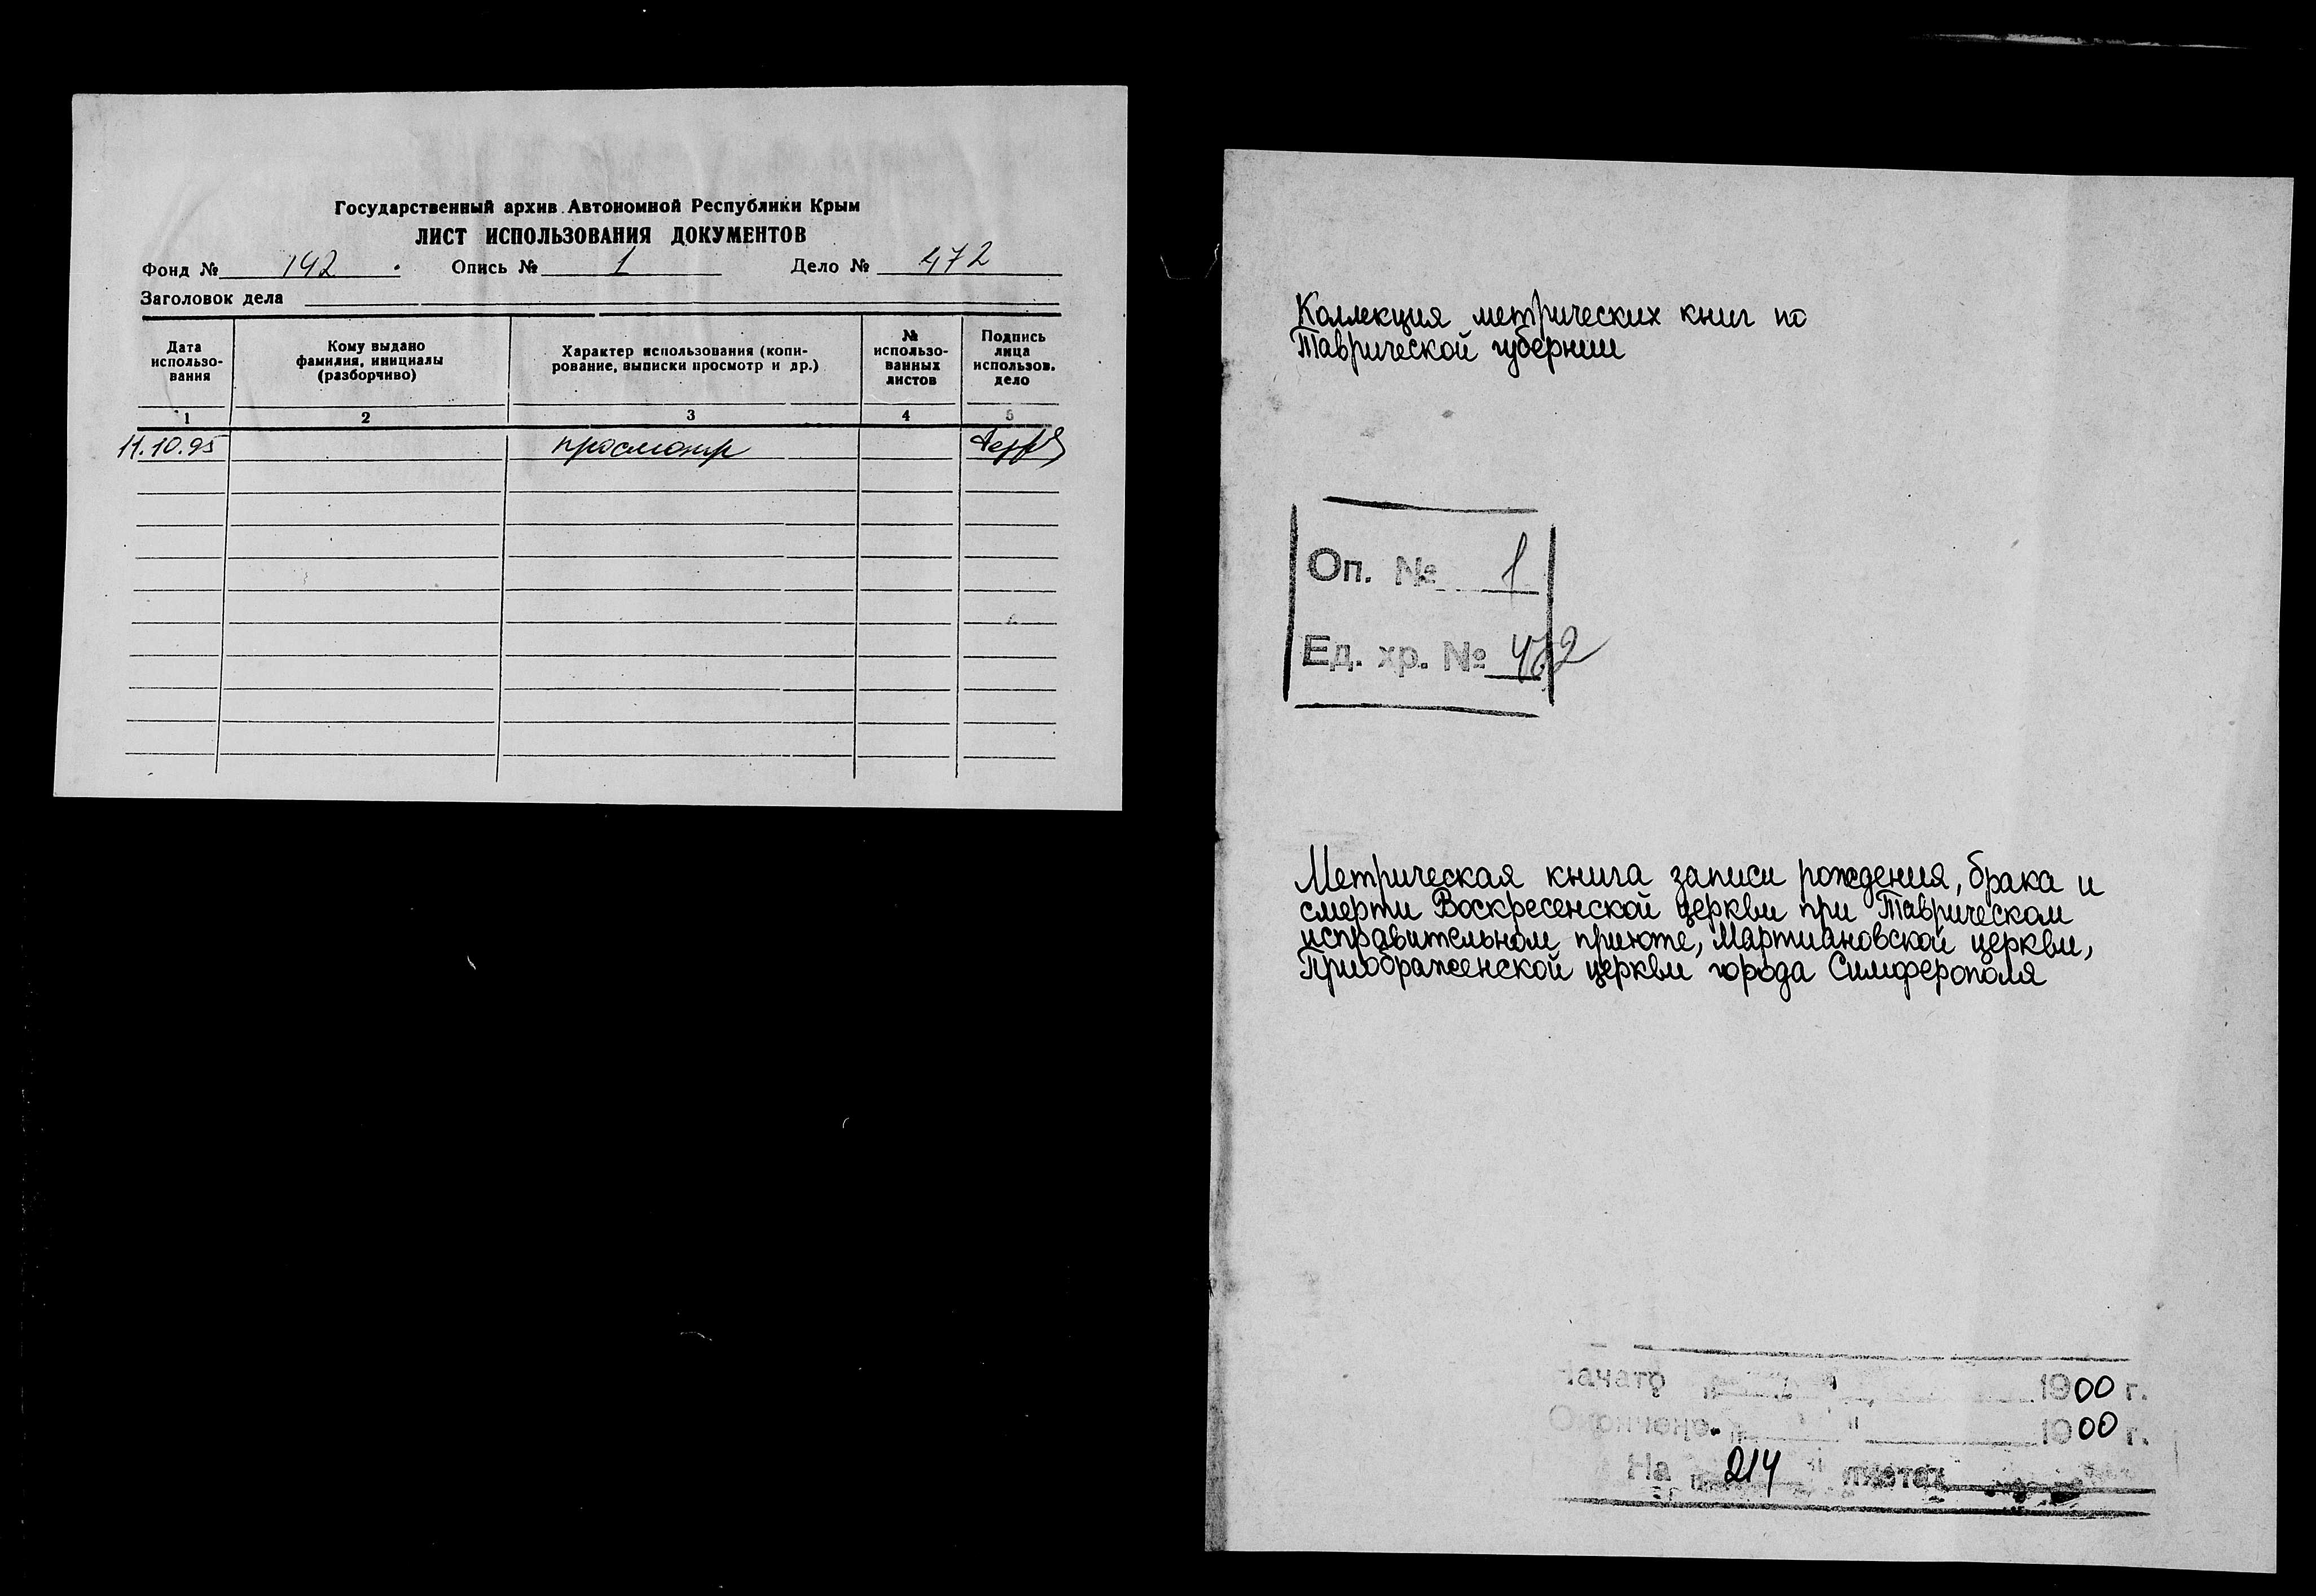 Государственный архив Автономной Республики Крым
ЛИСТ ИСПОЛЬЗОВАНИЯ ДОКУМЕНТОВ
Фонд № 142 Опись № 1 Дело № 472
Заголовок дела
Дата использо-вания
Кому выдано фамилия, инициалы (разборчиво)
Характер использования (копи-рование, выписки просмотр и др.)
№ использо-ванных листов
Подпись лица использов. дело
1 2 3 4 5
11.10.95 просмотр
Коллекция метрических книг по
Таврической губернии
Оп. № 1
Ед. хр. № 472
Метрическая книга записи рождения, брака и
смерти Воскресенской церкви при Таврическом
исправительном приюте, Мартиановской церкви,
Приображенской церкви города Симферополя
Начато " " 1900 г.
Окончено " " 1900 г.
На 214 листах